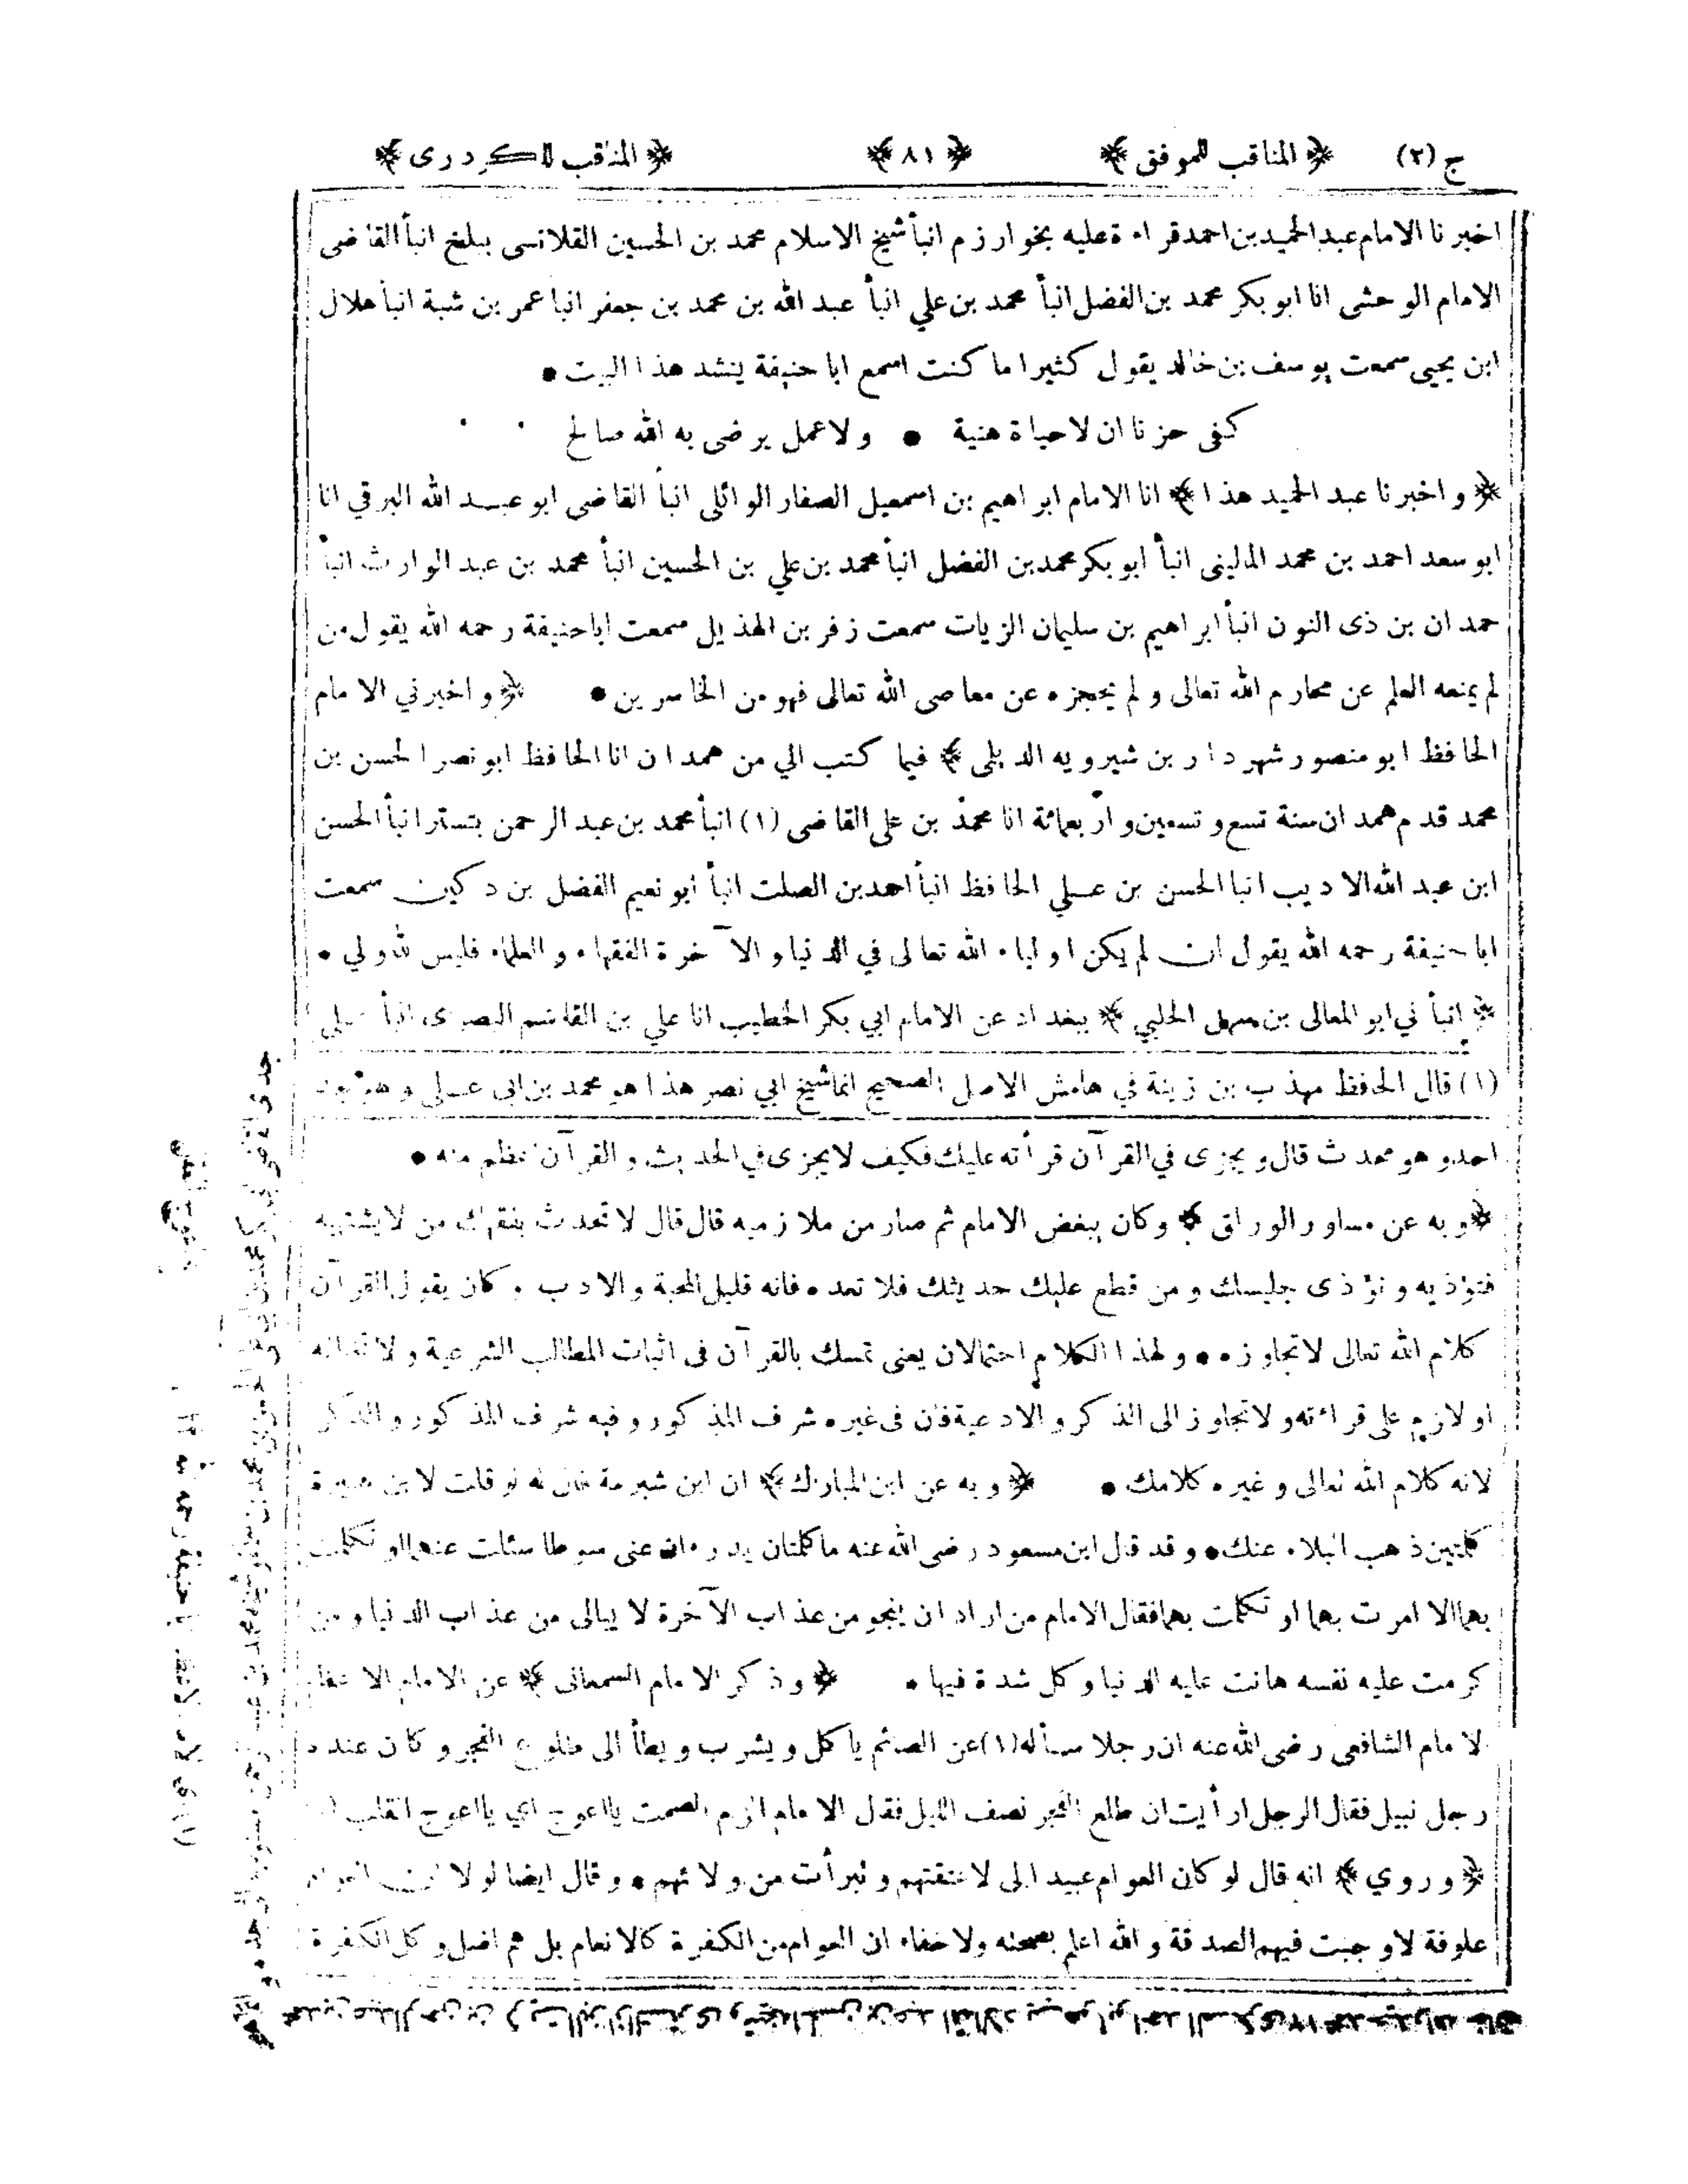 ج (٢) ﴿ المناقب للموفق ﴾ ﴿ ٨١ ﴾ ﴿ المناقب للكردرى ﴾
اخبرنا الامام عبدالحميد بن احمد قراءة عليه بخوارزم انبأ شيخ الاسلام محمد بن الحسين القلانسى ببلخ انبأ القاضى
الامام الوحشى انا ابوبكر محمد بن الفضل انبأ محمد بن علي انبأ عبد الله بن محمد بن جعفر انبا عمر بن شبة انبأ هلال
ابن يحيى سمعت يوسف بن خالد يقول كثيرا ما كنت اسمع ابا حنيفة ينشد هذا البيت •
كفى حزنا ان لا حياة هنية • ولا عمل يرضى به الله صالح
﴿ واخبرنا عبد الحميد هذا ﴾ انا الامام ابراهيم بن اسمعيل الصفار الوائلى انبأ القاضى ابو عبد الله البرقي انا
ابو سعد احمد بن محمد المالينى انبأ ابوبكر محمد بن الفضل انبأ محمد بن علي بن الحسين انبأ محمد بن عبد الوارث انبأ
حمدان بن ذى النون انبأ ابراهيم بن سليمان الزيات سمعت زفر بن الهذيل سمعت اباحنيفة رحمه الله يقول من
لم يمنعه العلم عن محارم الله تعالى ولم يحجزه عن معاصى الله تعالى فهو من الخاسرين • ﴿ واخبرني الامام
الحافظ ابو منصور شهردار بن شيرويه الديلمى ﴾ فيما كتب الي من همدان انا الحافظ ابو نصر الحسن بن
محمد قدم همدان سنة تسع وتسعين واربعمائة انا محمد بن على القاضى (١) انبأ محمد بن عبد الرحمن بتستر انبأ الحسن
ابن عبد الله الاديب انبا الحسن بن عـلي الحافظ انبأ احمد بن الصلت انبأ ابو نعيم الفضل بن دكين سمعت
ابا حنيفة رحمه الله يقول ان لم يكن اولياء الله تعالى في الدنيا والآخرة الفقهاء والعلماء فليس لله ولي •
﴿ انبأني ابو المعالى بن سهل الحلبي ﴾ ببغداد عن الامام ابي بكر الخطيب انا علي بن القاسم البصرى انبأ علي
(١) قال الحافظ مهذب بن زينة في هامش الاصل الصحيح انما شيخ ابي نصر هذا هو محمد بن ابى عـلى وهو
احد وهو محدث قال ويجزى في القرآن قرأته عليك فكيف لا يجزى في الحديث والقرآن اعظم منه •
﴿ وبه عن مساور الوراق ﴾ وكان يبغض الامام ثم صار من ملازميه قال قال لا تحدث بفقهك من لا يشتهيه
فتؤذيه وتؤذى جليسك ومن قطع عليك حديثك فلا تعده فانه قليل المحبة والادب • كان يقول القرآن
كلام الله تعالى لا تجاوزه • ولهذا الكلام احتمالان يعنى تمسك بالقرآن فى اثبات المطالب الشرعية ولا
او لازم على قرائته ولا تجاوز الى الذكر والادعية فان فى غيره شرف المذكور وفيه شرف المذكور والذكر
لانه كلام الله تعالى وغيره كلامك • ﴿ وبه عن ابن المبارك ﴾ ان ابن شبرمة قال له لو قلت لابن هبيرة
كلمتين ذهب البلاء عنك • وقد قال ابن مسعود رضى الله عنه ما كلمتان يدرءان عنى سوطا سئلت عنهما او تكلمت
بهما الا امرت بهما او تكلمت بهما فقال الامام من اراد ان ينجو من عذاب الآخرة لا يبالى من عذاب الدنيا ومن
كرمت عليه نفسه هانت عليه الدنيا وكل شدة فيها • ﴿ وذكر الامام السمعانى ﴾ عن الامام الاعظم
لامام الشافعى رضى الله عنه ان رجلا سأله (١) عن الصائم ياكل ويشرب ويطأ الى طلوع الفجر وكان عنده
رجل نبيل فقال الرجل ارأيت ان طلع الفجر نصف الليل فقال الامام الزم الصمت يا اعوج اي يا اعوج القلب
﴿ وروي ﴾ انه قال لو كان العوام عبيدا لى لاعتقتهم وتبرأت من ولائهم • وقال ايضا لولا ان
علوفة لاوجبت فيهم الصدقة والله اعلم بصحته ولا خفاء ان العوام من الكفرة كالانعام بل هم اضل وكل الكفرة